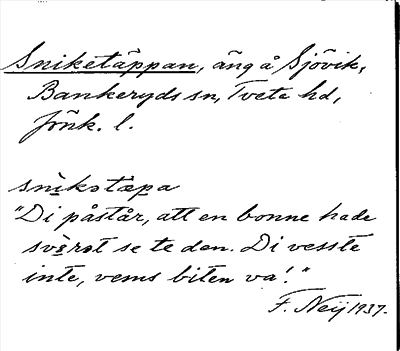 Sniketäppan, äng å Sjövik,
Bankeryds sn, Tveta hd,
Jönk. l.
snìkətæpa
"Di påstår, att en bonne hade
svɜ̀rət se te den. Di vesste
inte, vems biten va!"
F. Neij 1937.